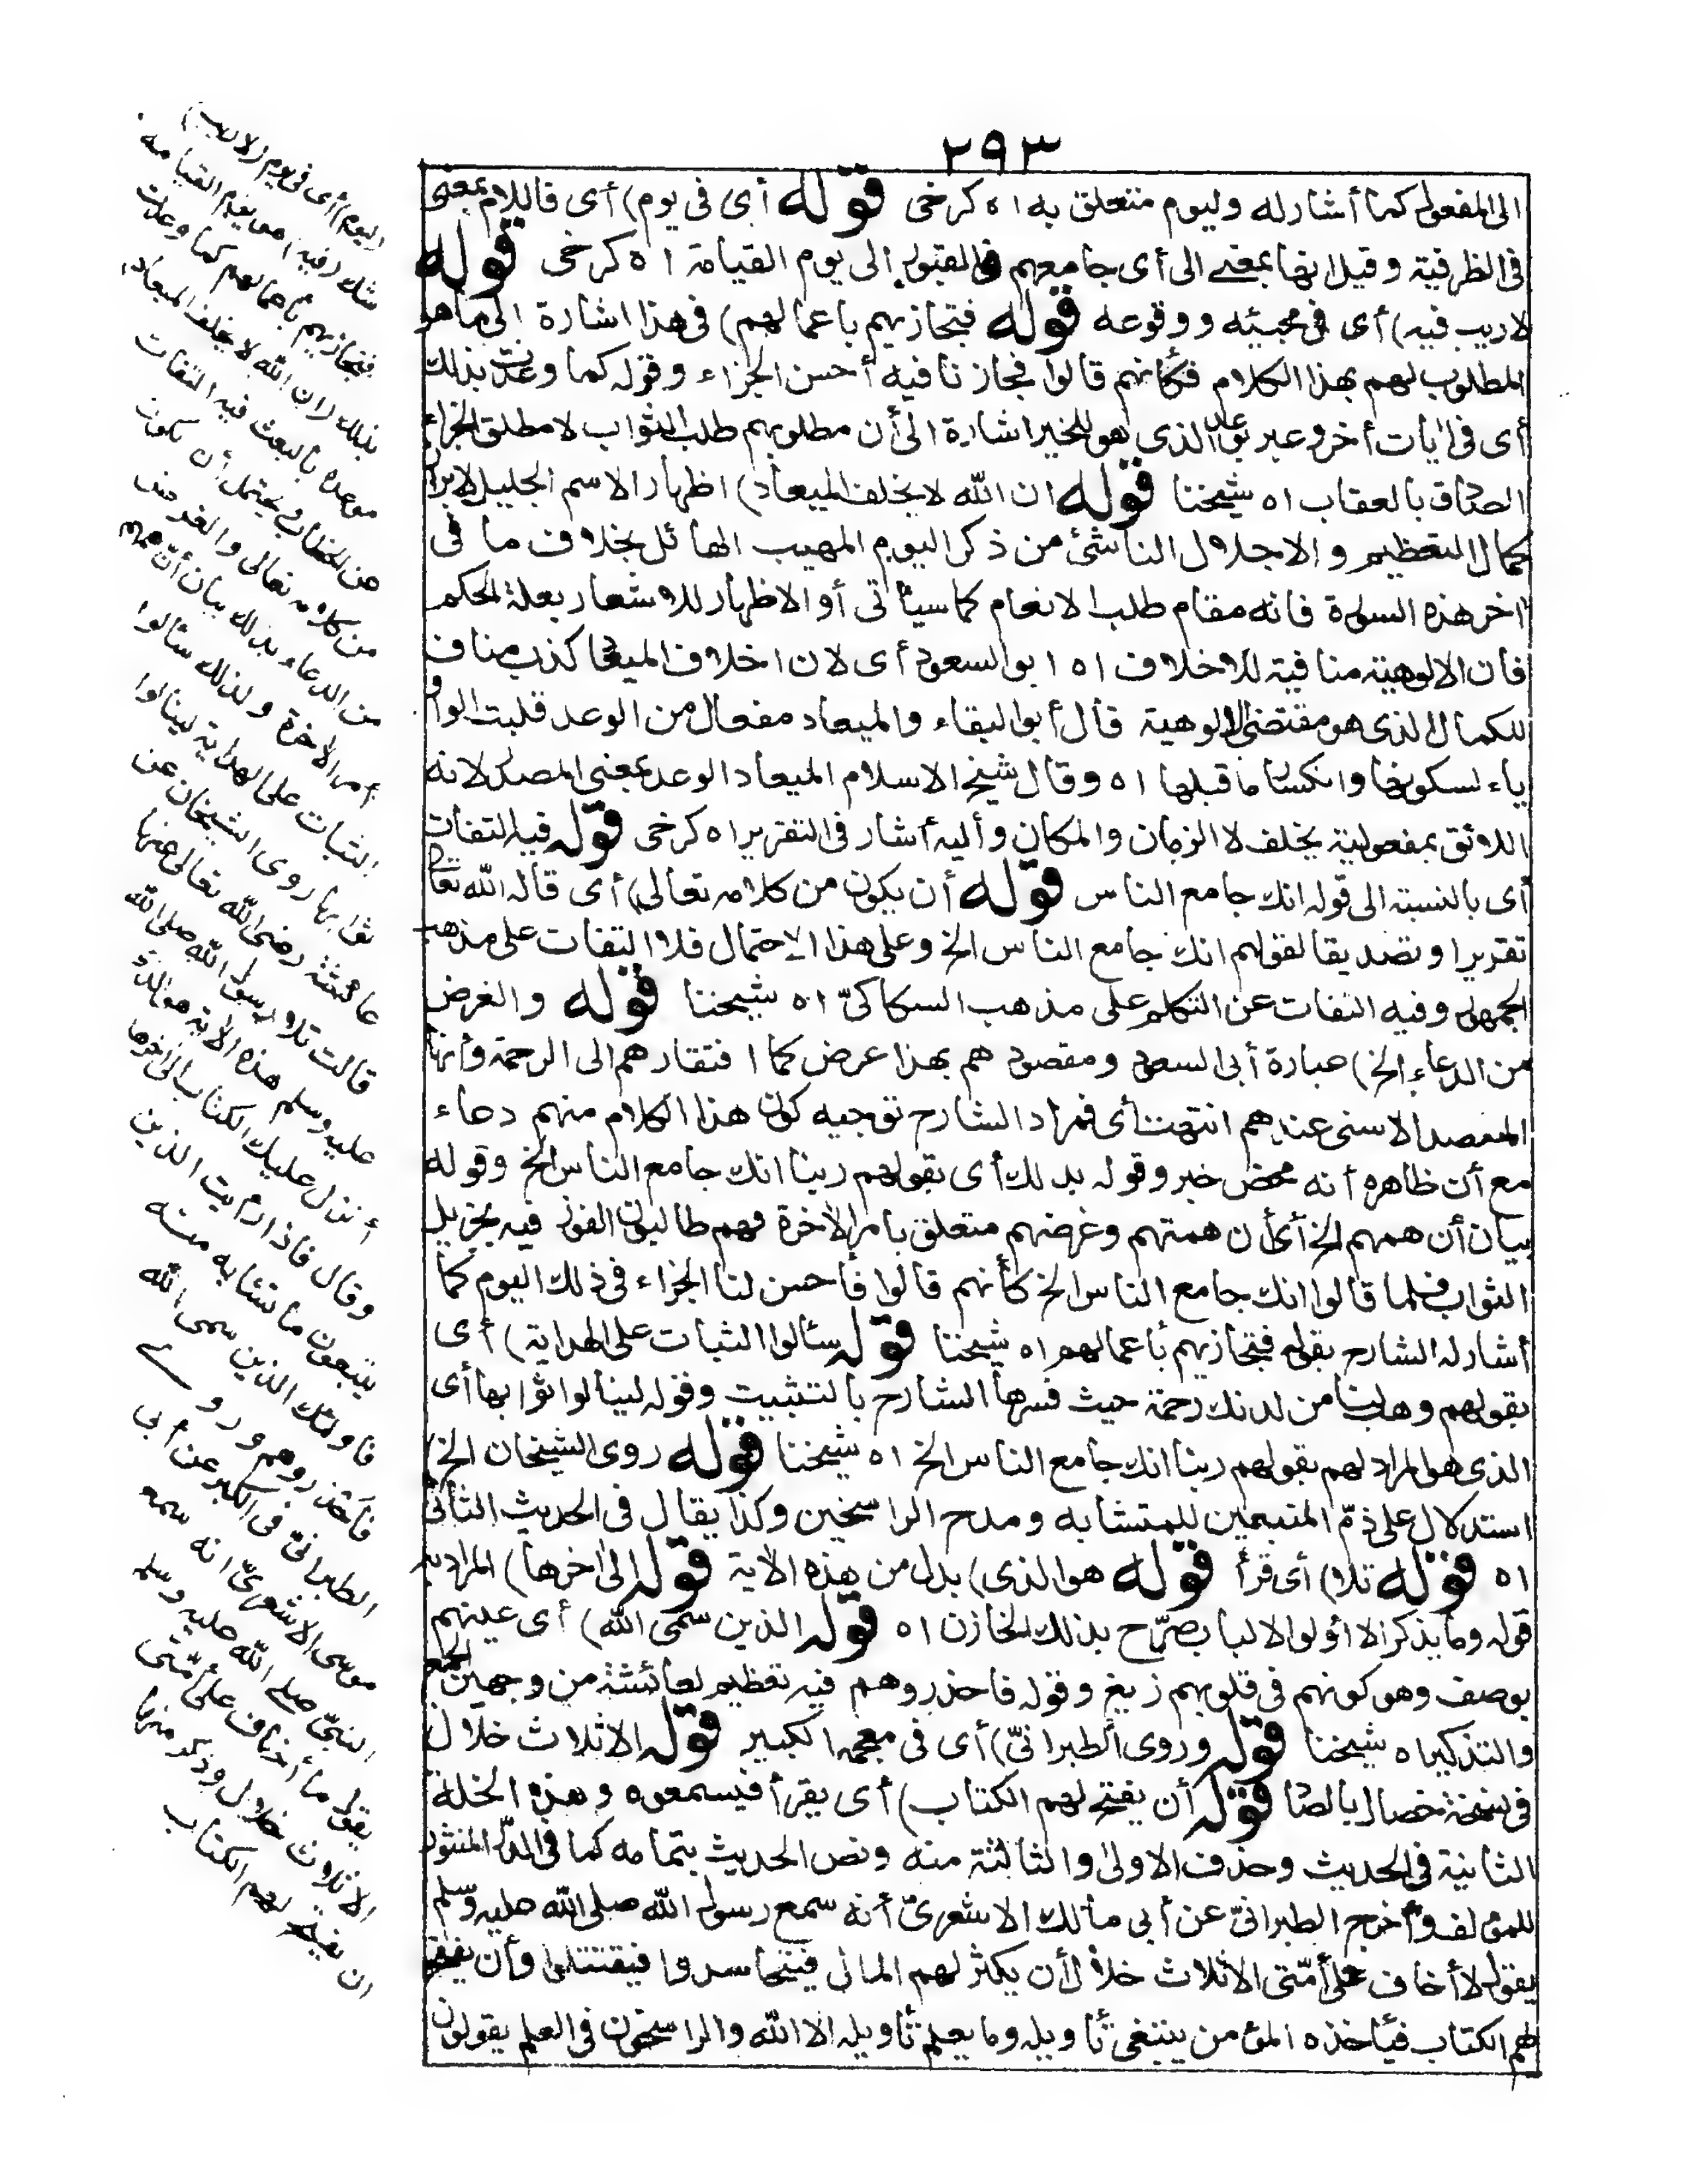 ٢٩٣
الى المفعول كما أشار له وليوم متعلق به اه كرخى قوله أى فى يوم) أى فاللام بمعنى
فى الظرفية وقيل انها بمعنى الى أى جامعهم فى القبور الى يوم القيامة اه كرخى قوله
لاريب فيه) أى فى مجيئه ووقوعه قوله فتجازيهم باعمالهم) فى هذا اشارة الى ما هو
المطلوب لهم بهذا الكلام فكأنهم قالوا فجازنا فيه أحسن الجزاء وقوله كما وعدت بذلك
أى فى ايات أخر وعبر بوعد الذى هو للخير اشارة الى أن مطلوبهم طلب الثواب لا مطلق الجزاء
الصادق بالعقاب اه شيخنا قوله ان الله لا يخلف الميعاد) اظهار الاسم الجليل لابراز
كمال التعظيم والاجلال الناشئ من ذكر اليوم المهيب الهائل بخلاف ما فى
اخر هذه السورة فانه مقام طلب الانعام كما سيأتى أو الاظهار للاشعار بعلة الحكم
فان الالوهية منافية للاخلاف اه ابو السعود أى لان اخلاف الميعاد كذب مناف
للكمال الذى هو مقتضى الالوهية قال أبو البقاء والميعاد مفعال من الوعد قلبت الواو
ياء لسكونها وانكسار ما قبلها اه وقال شيخ الاسلام الميعاد الوعد بمعنى المصدر لانه
اللائق بمفعولية يخلف لا الزمان والمكان وأليه أشار فى التقرير اه كرخى قوله فيه التفات
أى بالنسبة الى قوله انك جامع الناس قوله أن يكون من كلامه تعالى) أى قاله الله تعالى
تقريرا وتصديقا لقولهم انك جامع الناس الخ وعلى هذا الاحتمال فلا التفات على مذهب
الجمهور وفيه التفات عن التكلم على مذهب السكاكىّ اه شيخنا قوله والغرض
من الدعاء الخ) عبارة أبى السعود ومقصودهم بهذا عرض كما افتقارهم الى الرحمة وأنها
المقصد الاسنى عندهم انتهت أى فمراد الشارح توجيه كون هذا الكلام منهم دعاء
مع أن ظاهره أنه محض خبر وقوله بذلك أى بقولهم ربنا انك جامع الناس الخ وقوله
بيان أن همهم الخ أى أن همتهم وغرضهم متعلق بامر الاخرة فهم طالبون الفوز فيه بجزيل
الثواب فلما قالوا انك جامع الناس الخ كأنهم قالوا فأحسن لنا الجزاء فى ذلك اليوم كما
أشار له الشارح بقوله فتجازيهم بأعمالهم اه شيخنا قوله سألوا الثبات على الهداية) أى
بقولهم وهب لنا من لدنك رحمة حيث فسرها الشارح بالتثبيت وقوله لينالوا ثوابها أى
الذى هو المراد لهم بقولهم ربنا انك جامع الناس الخ اه شيخنا قوله روى الشيخان الخ)
استدلال على ذمّ المتبعين للمتشابه ومدح الراسخين وكذا يقال فى الحديث الثانى
اه قوله تلا) أى قرأ قوله هو الذى) بدل من هذه الاية قوله الى اخرها) المراد به
قوله وما يذكر الا أولوا الالباب صرّح بذلك الخازن اه قوله الذين سمى الله) أى عينهم
بوصف وهو كونهم فى قلوبهم زيغ وقوله فاحذروهم فيه تعظيم لعائشة من وجهين الجمع
والتذكير اه شيخنا قوله وروى الطبرانىّ) أى فى معجمه الكبير قوله الا ثلاث خلال
فى نسخة خصال بالصاد قوله أن يفتح لهم الكتاب) أى يقرأ فيسمعوه وهذه الخلة
الثانية فى الحديث وحذف الاولى والثالثة منه ونص الحديث بتمامه كما فى الدر المنثور
للمؤلف وأخرج الطبرانىّ عن أبى مالك الاشعرىّ أنه سمع رسول الله صلى الله عليه وسلم
يقول لا أخاف على أمّتى الا ثلاث خلال أن يكثر لهم المال فيتحاسدوا فيقتتلوا وأن يفتح
لهم الكتاب فيأخذه المؤمن يبتغى تأويله وما يعلم تأويله الا الله والراسخون فى العلم يقولون
اليوم) أى فى يوم (لاريب)
شك (فيه) هو يوم القيامة
فتجازيهم بأعمالهم كما وعدت
بذلك (ان الله لا يخلف الميعاد)
موعده بالبعث فيه التفات
عن الخطاب ويحتمل أن يكون
من كلامه تعالى والغرض
من الدعاء بذلك بيان أنّ همهم
أمر الاخرة ولذلك سألوا
الثبات على الهداية لينالوا
ثوابها روى الشيخان عن
عائشة رضى الله تعالى عنها
قالت تلا رسول الله صلى الله
عليه وسلم هذه الاية هو الذى
أنزل عليك الكتاب الى اخرها
وقال فاذا رأيت الذين
يتبعون ما تشابه منه
فاولئك الذين سمى الله
فاحذروهم وروى
الطبرانىّ فى الكبير عن أبى
موسى الاشعرىّ انه سمع
النبىّ صلى الله عليه وسلم
يقول ما أخاف على أمّتى
الا ثلاث خلال وذكر منها
ان يفتح لهم الكتاب